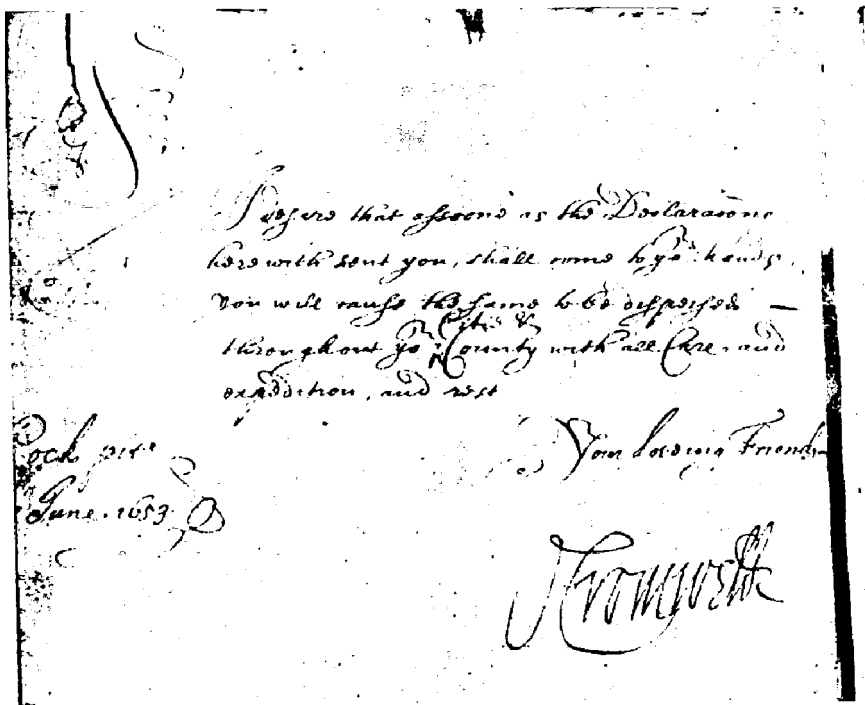 Sr
I desire that assoone as the Declaracons
herewith sent you, shall come to yor hands,
You will cause the same to be dispersed —
Citie &
throughout yor County with all Care, and
expedition, and rest
Your loveing Friend
Cock pitt
June. 1653
O Cromwell